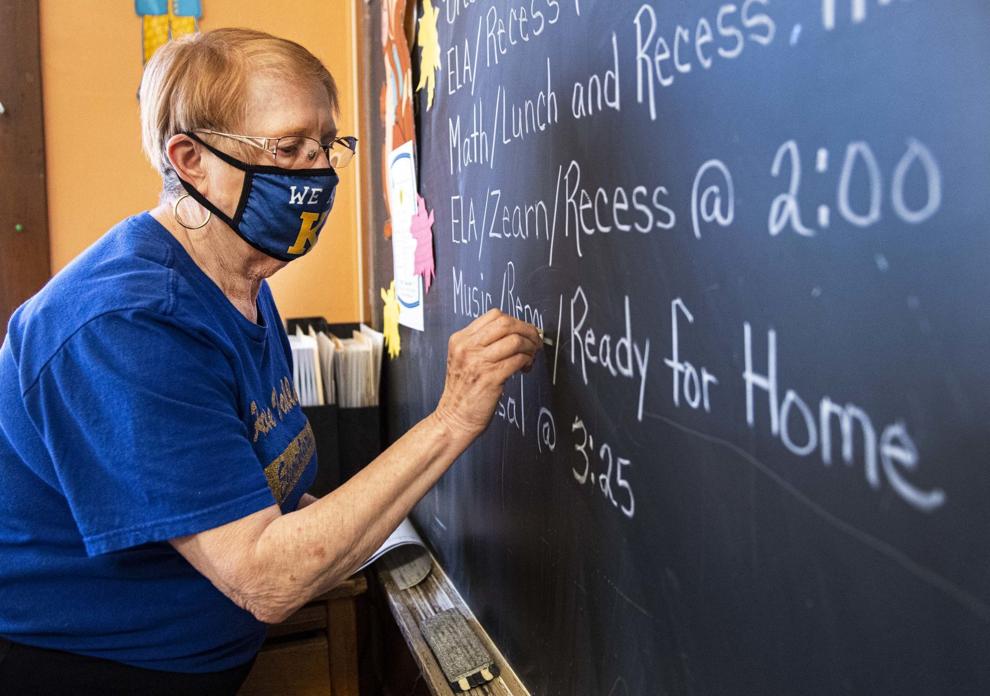 ELA/Recess
Math/Lunch and Recess,
ELA/Zearn/Recess @ 2:00
Music/ /Ready for Home
@ 3:25
WE
K